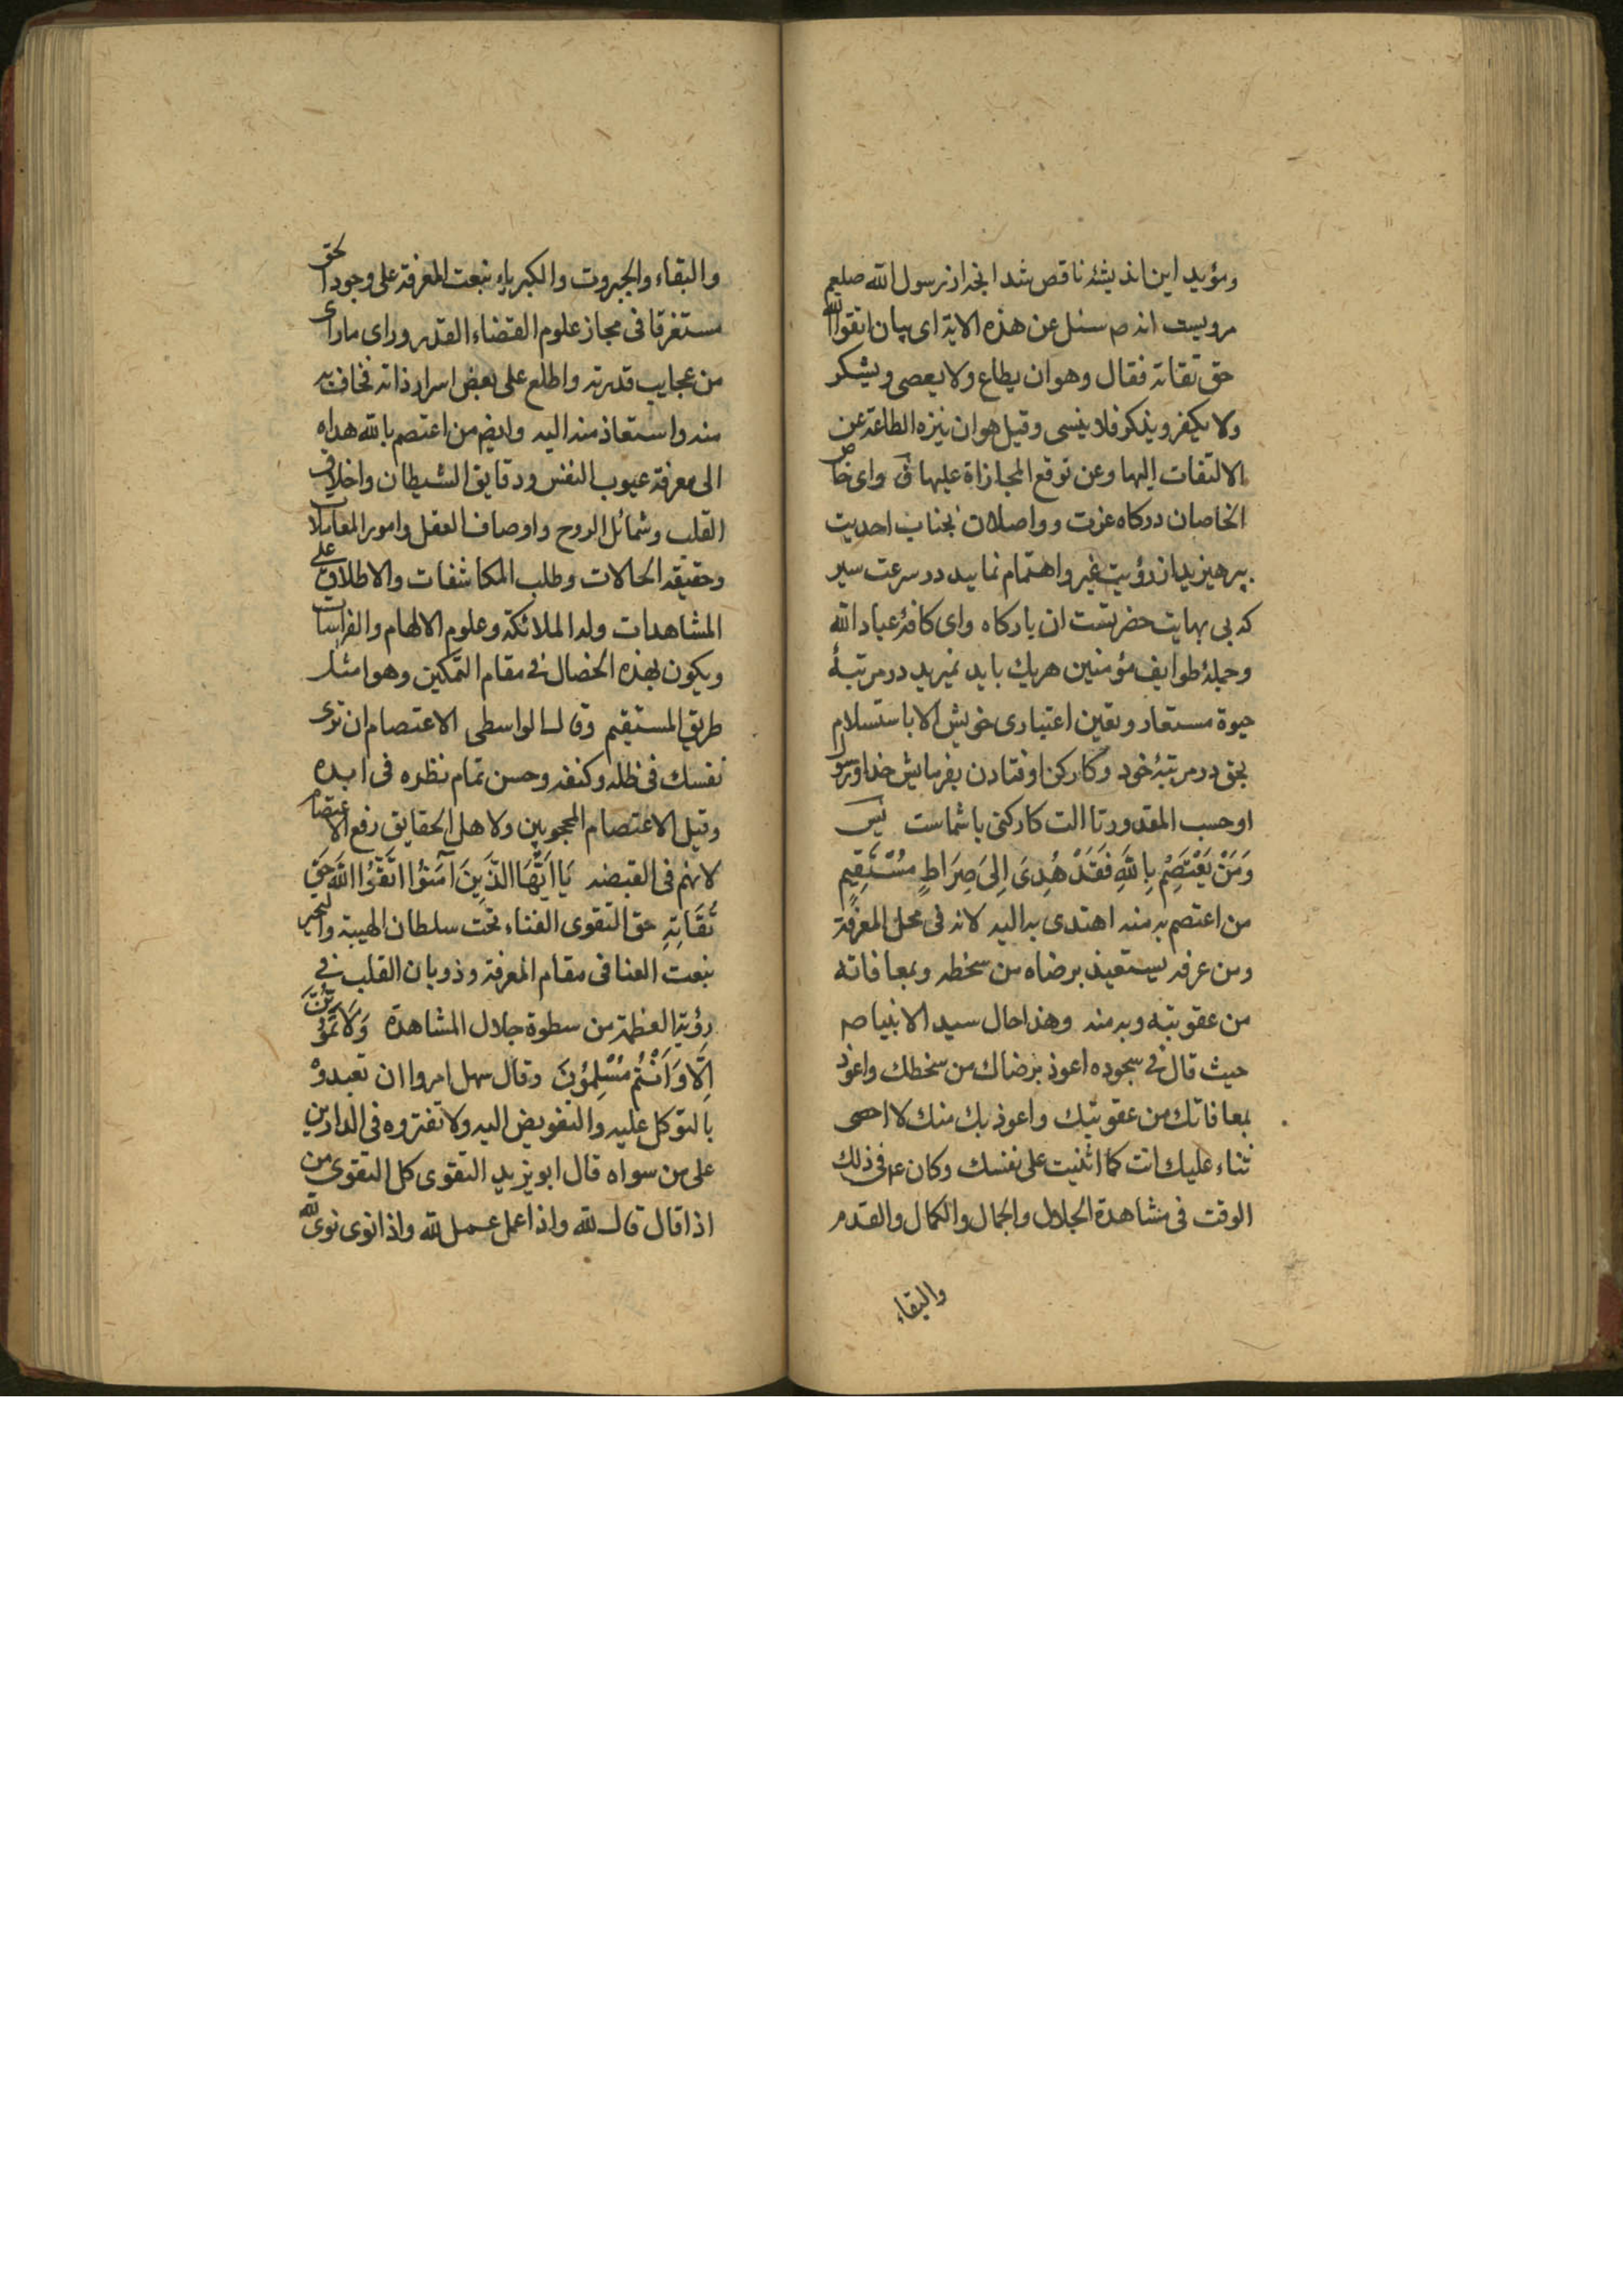 ومؤید این اندیشهٔ ناقص شد انچه از رسول الله صلعم
مرویست انه ص سئل عن هذه الایة ای بیان اتقوا الله
حق تقاته فقال وهو ان یطاع ولا یعصی ویشکر
ولا یکفر ویذکر فلا ینسی وقیل هو ان ینزه الطاعة عن
الالتفات الیها وعن توقع المجازاة علیها ق وای خاص
الخاصان درکاه عزت وواصلان بجناب احدیت
بپرهیزید از رؤیت غیر واهتمام نمایید در سرعت سیر
که بی نهایت حضرتست ان بارکاه وای کافهٔ عباد الله
وجملهٔ طوایف مؤمنین هریك باید نمیرید در مرتبهٔ
حیوة مستعار وتعین اعتباری خویش الا باستسلام
بحق در مرتبهٔ خود وکارکن اوفتادن بفرمایش خدا ورسول
او حسب المقدور تا الت کارکنی با شماست لیس
وَمَنْ یَعْتَصِمْ بِاللّهِ فَقَدْ هُدِیَ اِلیَ صِرَاطٍ مُسْتَقِیمٍ
من اعتصم به منه اهتدی به الیه لانه فی محل المعرفة
ومن عرفه یستعیذ برضاه من سخطه وبمعافاته
من عقوبته وبه منه وهذا حال سید الانبیا صم
حیث قال فی سجوده اعوذ برضاك من سخطك واعوذ
بمعافاتك من عقوبتك واعوذ بك منك لا احصی
ثناء علیك انت کما اثنیت علی نفسك وکان عم فی ذلك
الوقت فی مشاهدة الجلال والجمال والکمال والقدم
والبقاء
والبقاء والجبروت والکبریاء بنعت المعرفة علی وجود الحق
مستغرقا فی مجاز علوم القضاء القدر ورای ما رای
من عجایب قدرته واطلع علی بعض اسرار ذاته فخاف به
منه واستعاذ منه الیه وایضا من اعتصم بالله هداه
الی معرفة عیوب النفس ودقایق الشیطان واخلاق
القلب وشمائل الروح واوصاف العقل وامور المعاملات
وحقیقة الحالات وطلب المکاشفات والاطلاق علی
المشاهدات ولد الملائکة وعلوم الالهام والفراسات
ویکون بهذه الخصال فی مقام التمکین وهو امثل
طریق المستقیم وقال الواسطی الاعتصام ان تری
نفسك فی ظله وکنفه وحسن تمام نظره فی ابده
وقیل الاعتصام المحجوبین ولاهل الحقایق رفع الاعتصام
لانهم فی القبضة یَا اَیُّهَا الَّذِینَ آمَنُوا اتَّقُوا اللّهَ حَقَّ
تُقَاتِهِ حق التقوی الفناء تحت سلطان الهیبة والتحیر
بنعت الفنا فی مقام المعرفة وذوبان القلب فی
رؤیة العظمة من سطوة جلال المشاهدة وَلَا تَمُوتُنَّ
اِلَّا وَاَنْتُمْ مُسْلِمُونَ وقال سهل امروا ان تعبدوه
بالتوکل علیه والتفویض الیه ولا تفتروه فی الدارین
علی من سواه قال ابو یزید التقوی کل التقوی من
اذا قال قال لله واذا عمل عمل لله واذا نوی نوی لله